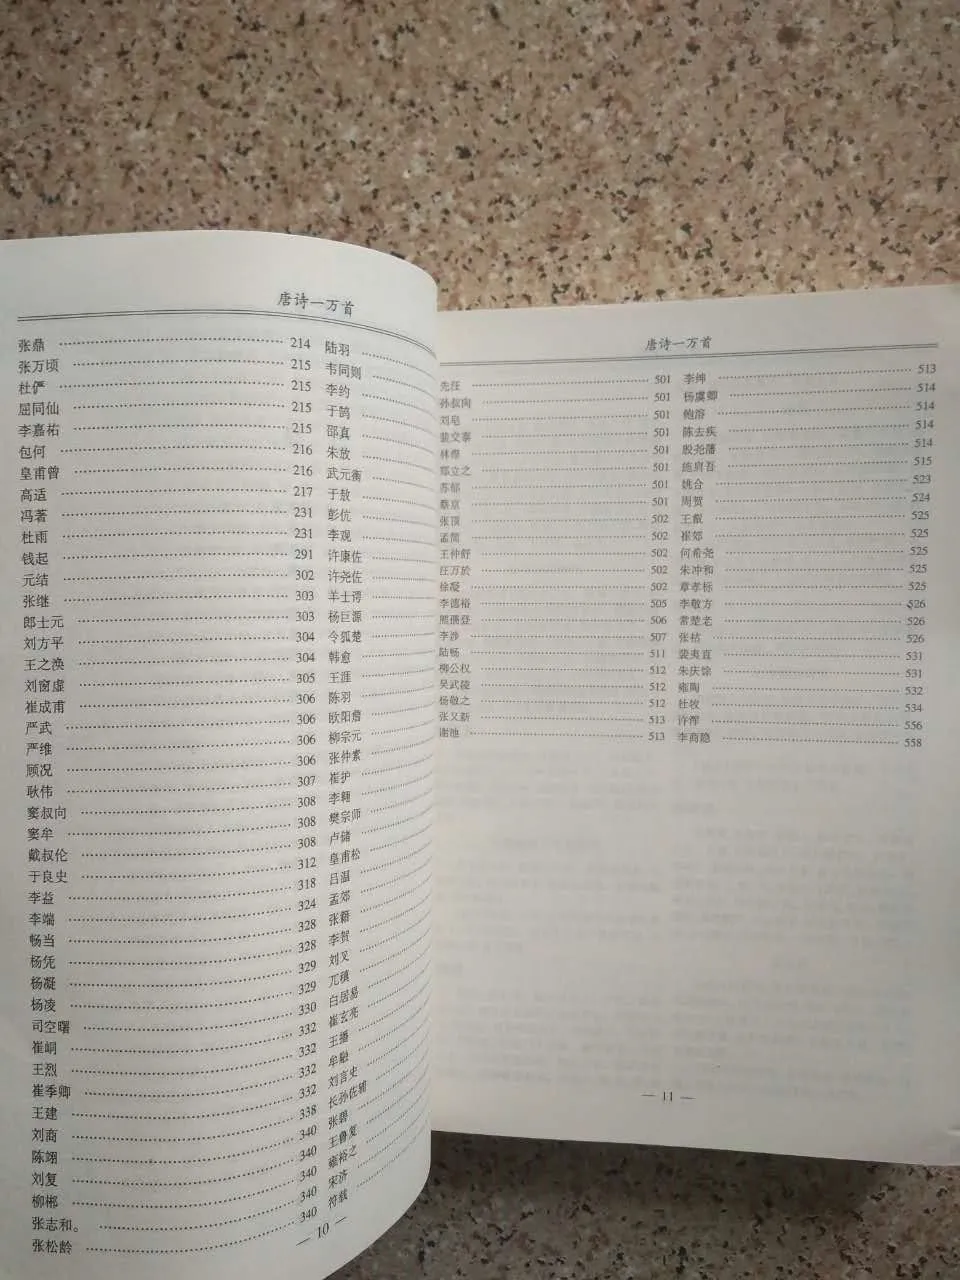 唐诗一万首
张鼎 214
张万顷 215
杜俨 215
屈同仙 215
李嘉祐 215
包何 216
皇甫曾 216
高适 217
冯著 231
杜雨 231
钱起 291
元结 302
张继 303
郎士元 303
刘方平 304
王之涣 304
刘窗虚 305
崔成甫 306
严武 306
严维 306
顾况 306
耿伟 307
窦叔向 308
窦牟 308
戴叔伦 308
于良史 312
李益 318
李端 324
畅当 328
杨凭 328
杨凝 329
杨凌 329
司空曙 330
崔峒 332
王烈 332
崔季卿 332
王建 332
刘商 338
陈翊 340
刘复 340
柳郴 340
张志和。 340
张松龄 340
陆羽
韦同则
李约
于鹄
邵真
朱放
武元衡
于敖
彭伉
李观
许康佐
许尧佐
羊士谔
杨巨源
令狐楚
韩愈
王涯
陈羽
欧阳詹
柳宗元
张仲素
崔护
李翱
樊宗师
卢储
皇甫松
吕温
孟郊
张籍
李贺
刘叉
元稹
白居易
崔玄亮
王播
牟融
刘言史
长孙佐辅
张碧
王鲁复
雍裕之
宋济
符载
— 10 —
唐诗一万首
先汪 501
孙叔向 501
刘皂 501
裴交泰 501
林㯽 501
郑立之 501
苏郁 501
蔡京 501
张顶 502
孟简 502
王仲舒 502
汪万於 502
徐凝 502
李德裕 505
熊孺登 506
李涉 507
陆畅 511
柳公权 512
吴武陵 512
杨敬之 512
张又新 513
谢池 513
李绅 513
杨虞卿 514
鲍溶 514
陈去疾 514
殷尧藩 514
施肩吾 515
姚合 523
周贺 524
王叡 525
崔郊 525
何希尧 525
朱冲和 525
章孝标 525
李敬方 526
常楚老 526
张祜 526
裴夷直 531
朱庆馀 531
雍陶 532
杜牧 534
许浑 556
李商隐 558
— 11 —